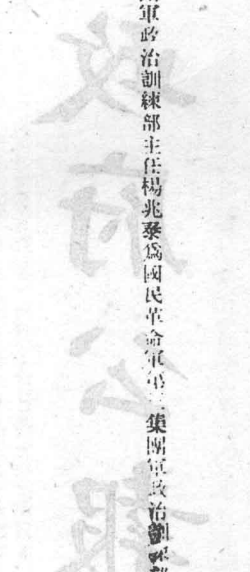 軍政治訓練部主任楊兆泰爲國民革命軍第三集團軍政治訓練部
政府公報